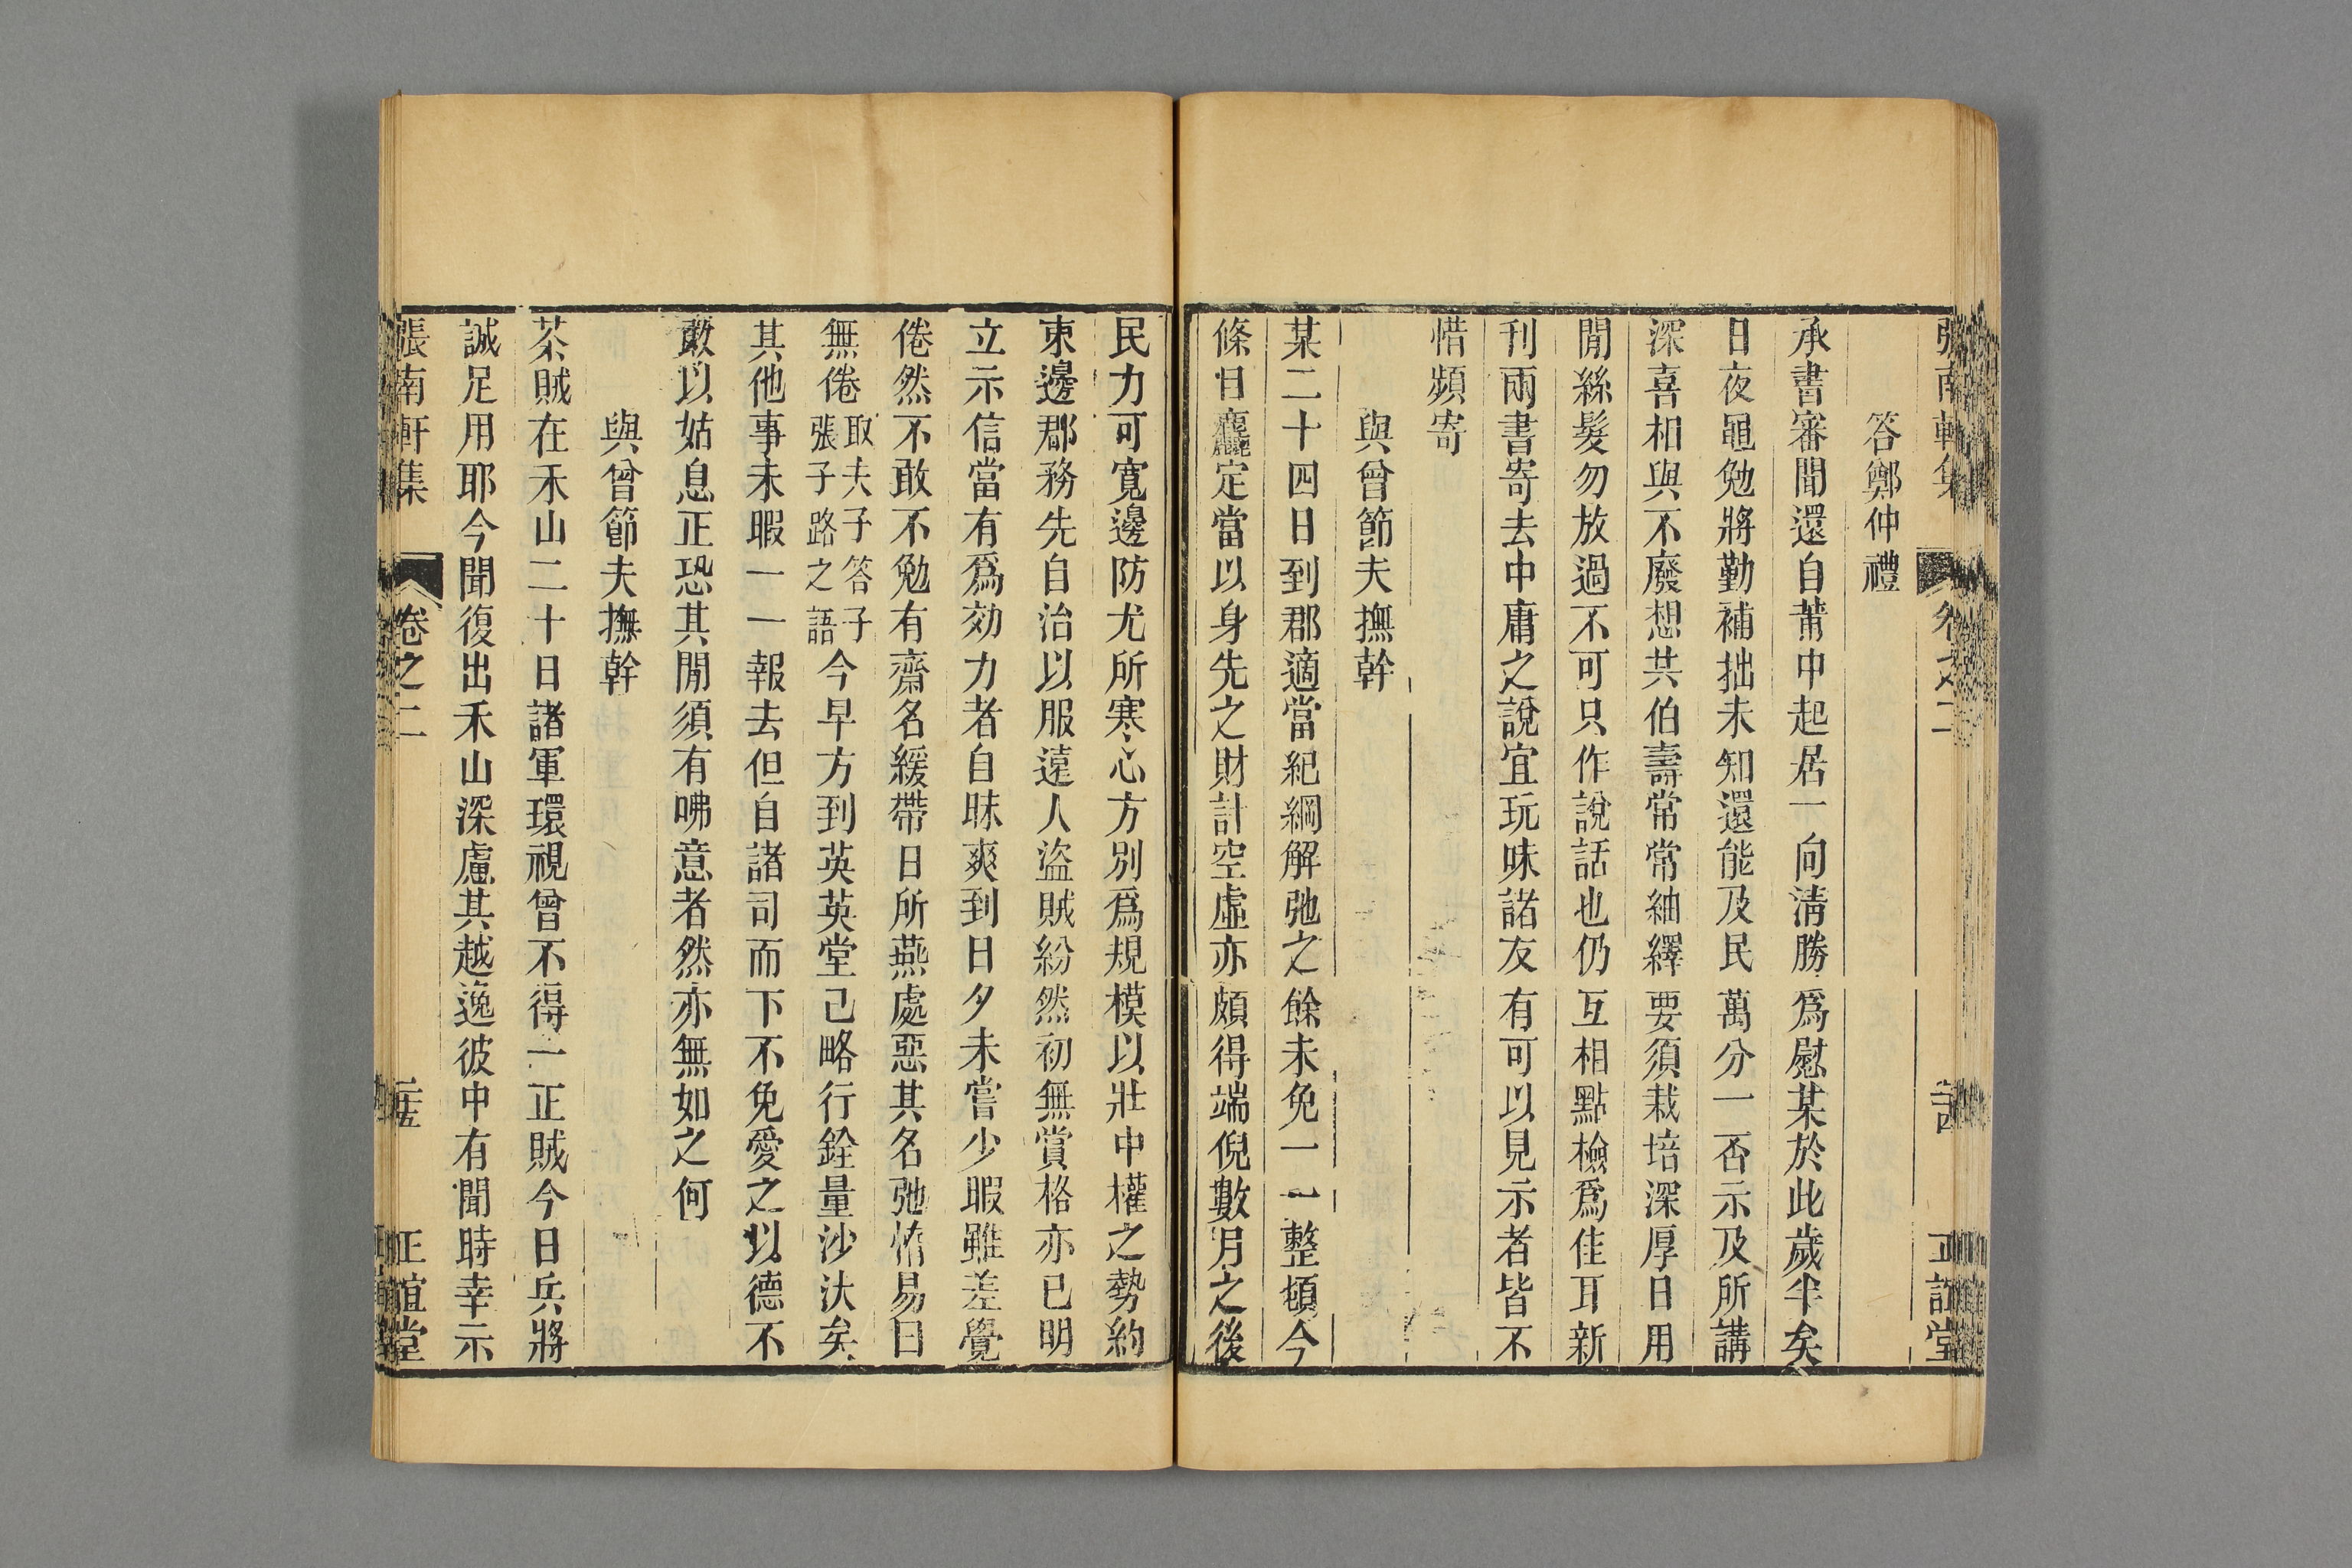 張南軒集 卷之二 正誼堂
答鄭仲禮
承書審閒還自莆中起居一向淸勝爲慰某於此歲半矣
日夜黽勉將勤補拙未知還能及民萬分一否示及所講
深喜相與不廢想共伯壽常常紬繹要須栽培深厚日用
閒絲髮勿放過不可只作說話也仍互相點檢爲佳耳新
刊兩書寄去中庸之說宜玩味諸友有可以見示者皆不
惜頻寄
與曾節夫撫幹
某二十四日到郡適當紀綱解弛之餘未免一一整頓今
條目麤定當以身先之財計空虛亦頗得端倪數月之後
民力可寬邊防尤所寒心方別爲規模以壯中權之勢約
束邊郡務先自治以服遠人盜賊紛然初無賞格亦已明
立示信當有爲効力者自昧爽到日夕未嘗少暇雖差覺
倦然不敢不勉有齋名緩帶日所燕處惡其名弛惰易曰
無倦取夫子答子張子路之語今早方到英英堂已略行銓量沙汰矣
其他事未暇一一報去但自諸司而下不免愛之以德不
敢以姑息正恐其閒須有咈意者然亦無如之何
與曾節夫撫幹
茶賊在禾山二十日諸軍環視曾不得一正賊今日兵將
誠足用耶今聞復出禾山深慮其越逸彼中有聞時幸示
張南軒集 卷之二 正誼堂